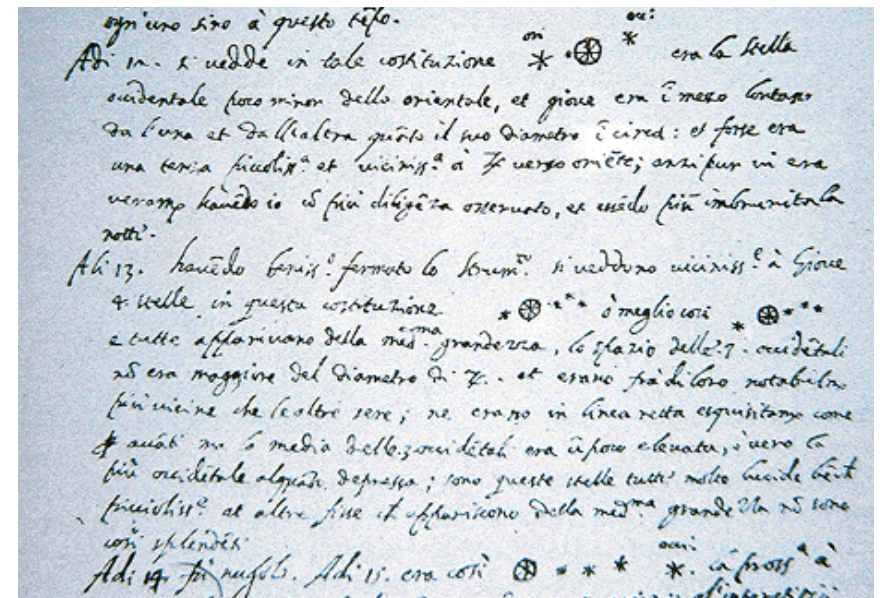 ogn'uno sino à questo tẽpo.
ori: occi:
Adi 12. si vedde in tale costituzione era la stella
occidentale poco minor della orientale, et giove era ĩ mezo lontano
da l'una et dall'altra quãto il suo diametro ĩ circa: et forse era
una terza piccoliss.ᵃ et viciniss.ᵃ à ♃ verso oriẽte; anzi pur vi era
veramᵉ havẽdo io cõ più diligẽza osservato, et essẽdo più imbrunita la
notte.
Adi 13. havẽdo beniss.º fermato lo strumᵗº. si veddono viciniss.ᵉ à Giove
4 stelle in questa costituzione ò meglio così
e tutte apparivano della med.ᵐᵃ grandezza, lo spazio delle 3. occidẽtali
nõ era maggiore del diametro di ♃. et erano frà di loro notabilmᵉ
più vicine che le altre sere; ne erano in linea retta esquisitamᵉ come
avãti ma la media delle 3 occidẽtali era ũ poco elevata, ò vero la
più occidẽtale alquãto depressa; sono queste stelle tutte molto lucide bẽche
picciliss.ᵉ et altre fisse che appariscono della med.ᵐᵃ grandezza nõ sono
così splendẽti
Adi 14. fù nugolo. Adi 15. era così occi: la pross.ᵃ à